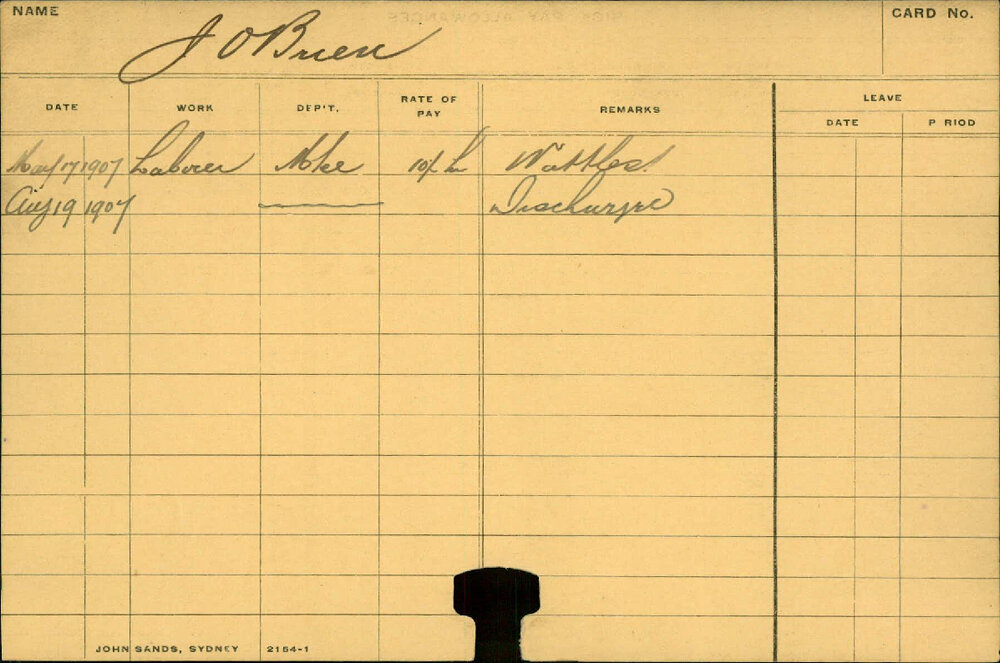 NAME J O'Brien CARD No.
DATE WORK DEP'T. RATE OF PAY REMARKS LEAVE
DATE P RIOD
May 17 1907 Laborer 10/- Wattles
Aug 19 1907 Discharged
JOHN SANDS, SYDNEY 2154-1